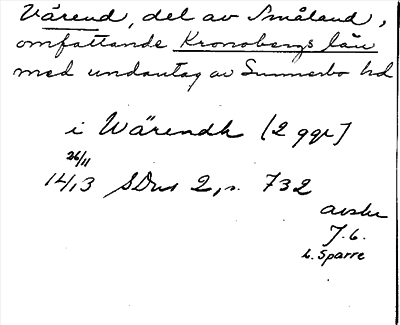 Värend, del av Småland,
omfattande Kronobergs län
med undantag av Sunnerbo hd
i Wärendh (2 ggr)
26/11
1413 SDns 2, s. 732
avskr
J. G.
L. Sparre